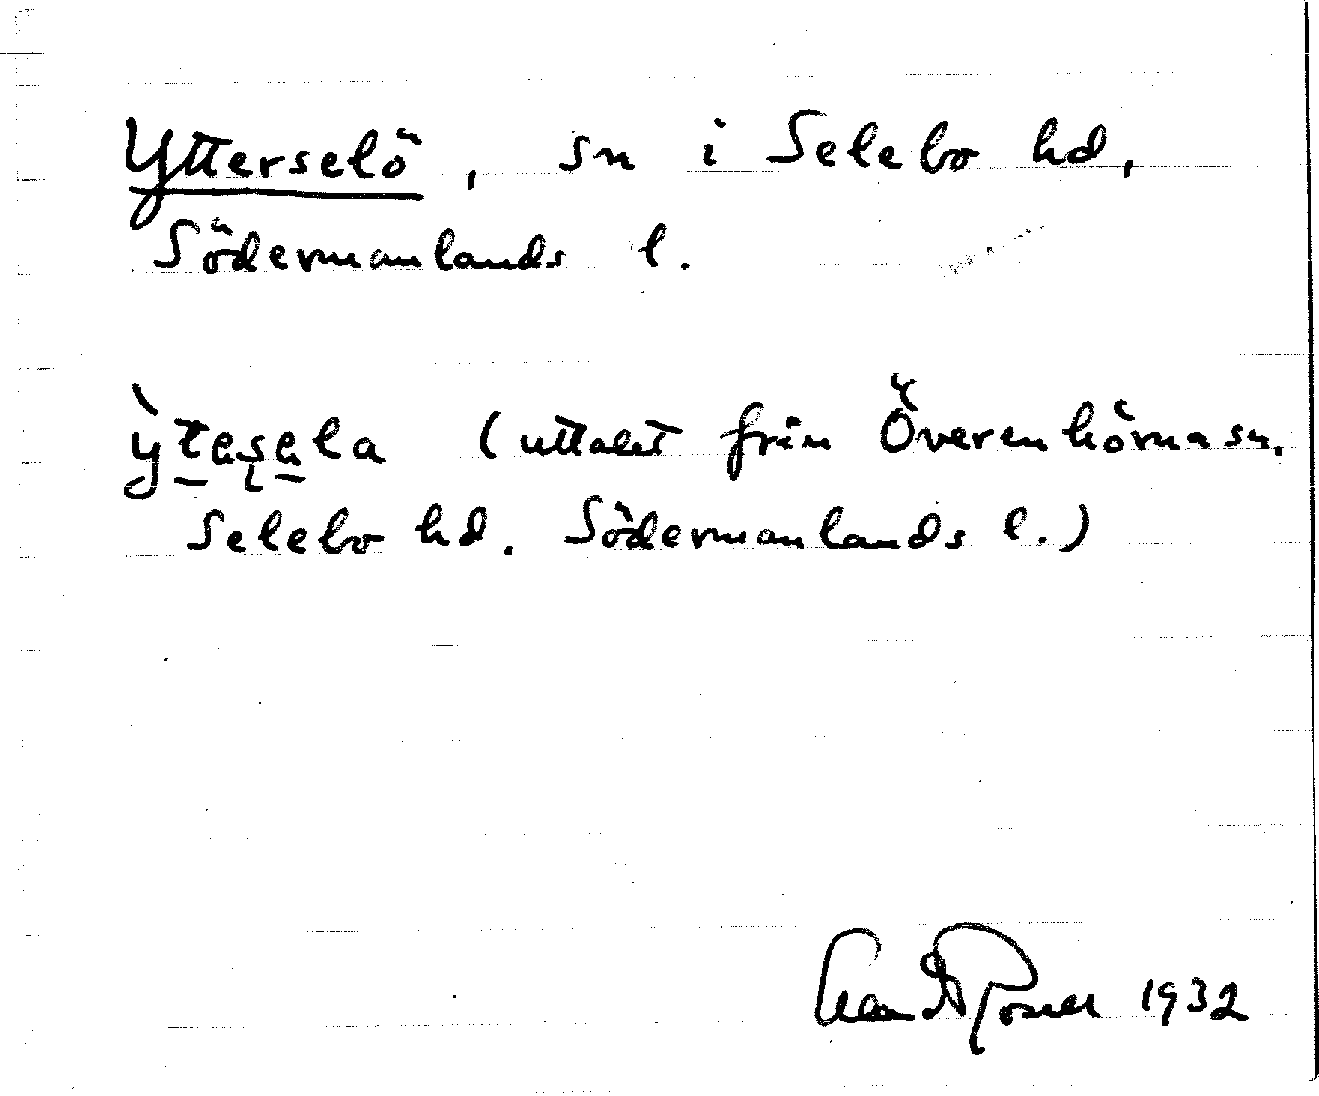 Ytterselö, sn i Selebo hd,
Södermanlands l.
ỳtesela (uttalet från Överenhörna sn.
Selebo hd. Södermanlands l.)
1932